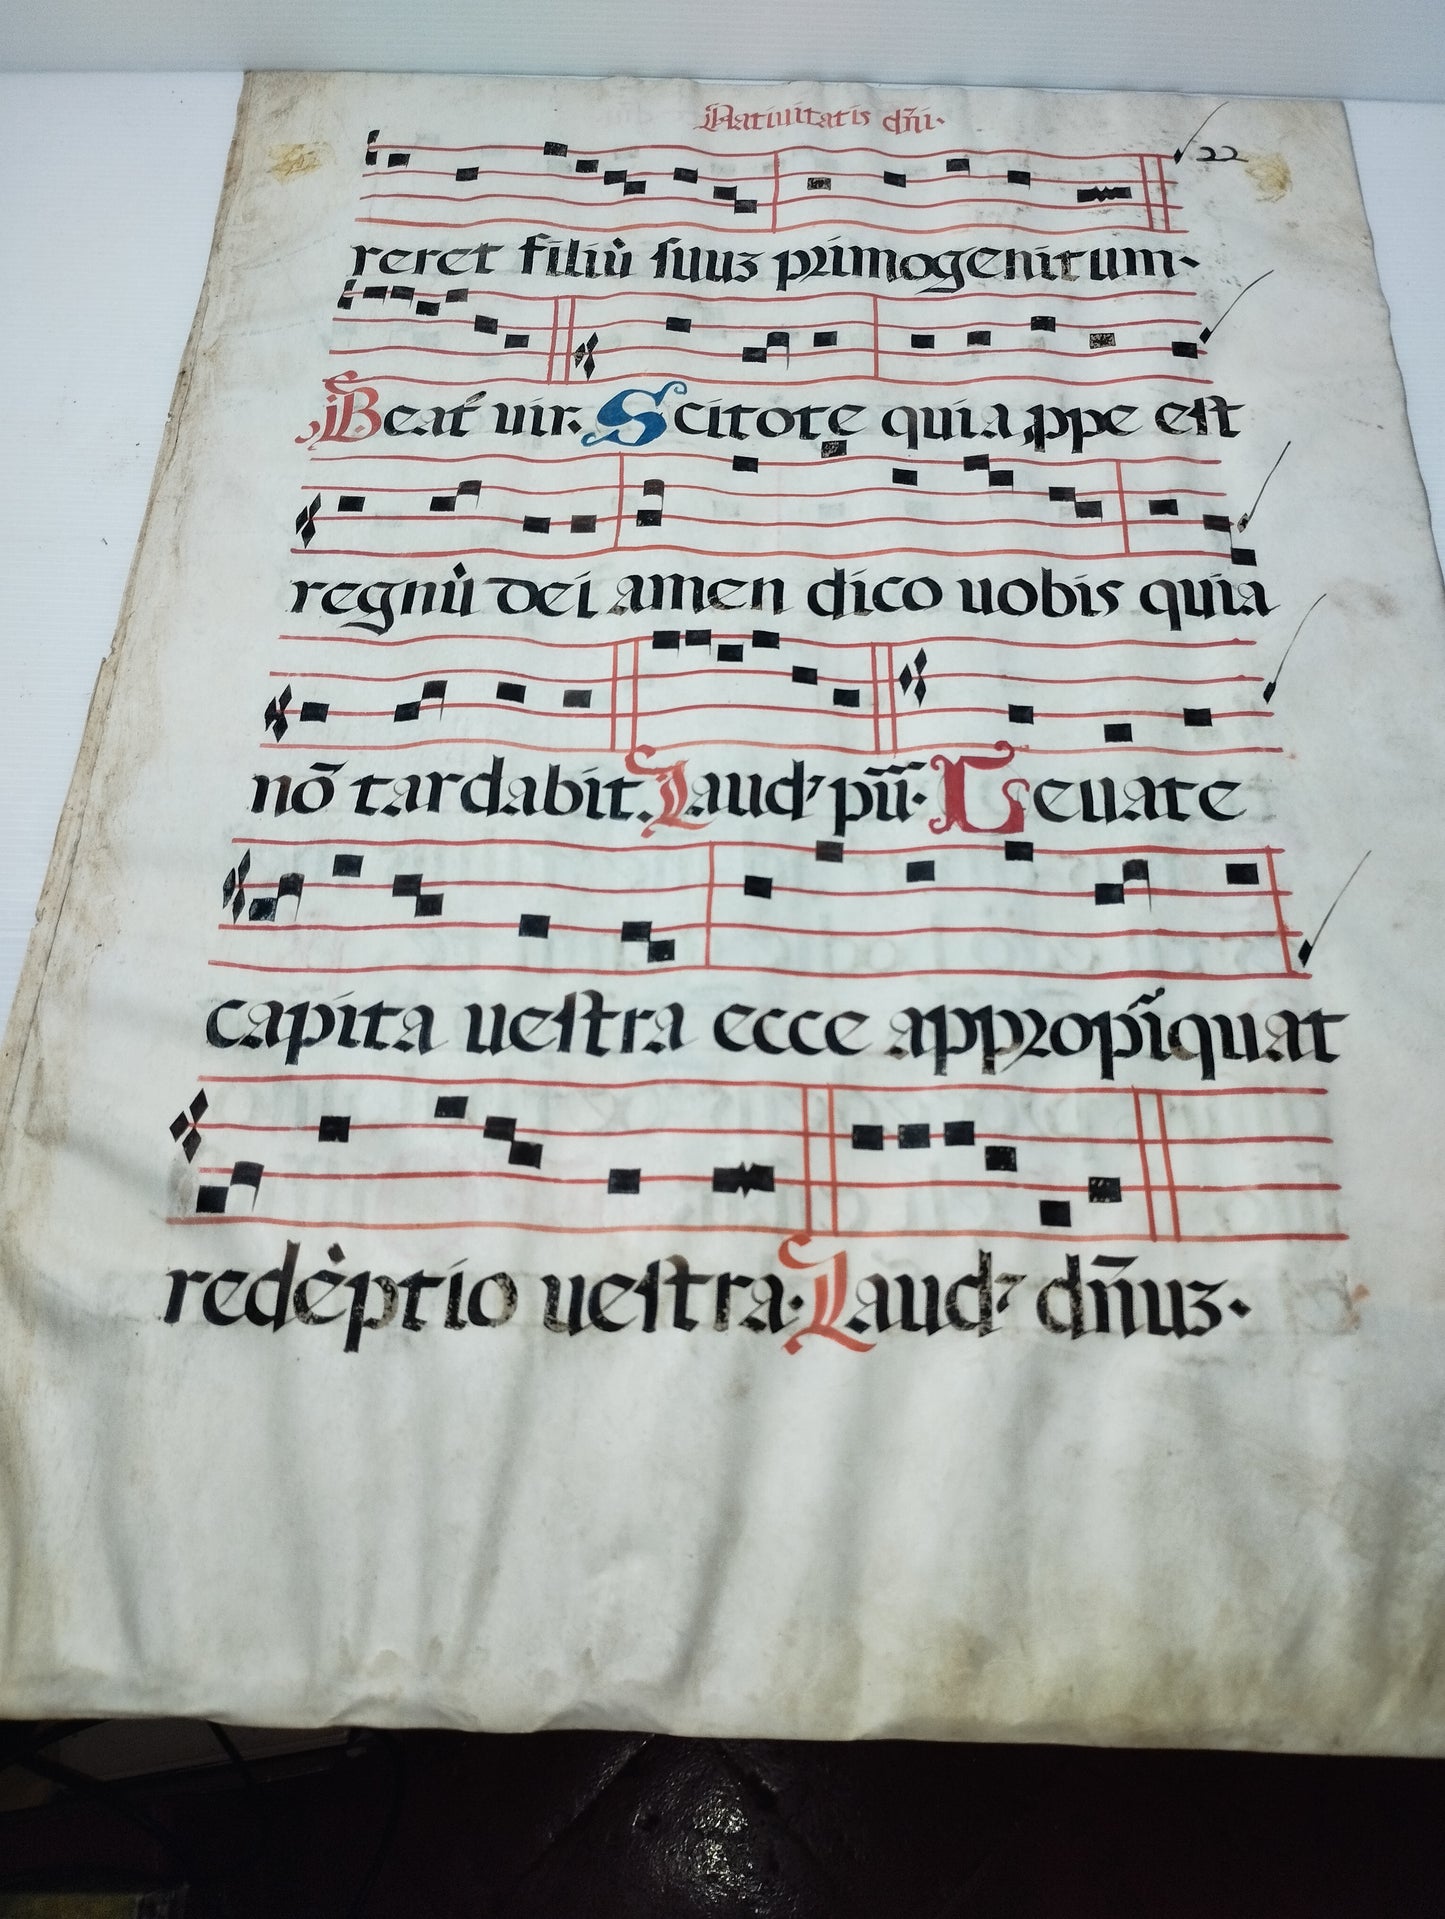 Natiuitatis dñi·
22
reret filiũ ſuuʒ primogenitum·
Beat᷎ uir· Scitote quia ꝓpe eſt
regnũ dei amen dico uobis quia
nõ tardabit. Laudꝰ pũi· Leuate
capita ueſtra ecce appropĩquat
redẽptio ueſtra· Laudꝰ dñuʒ·